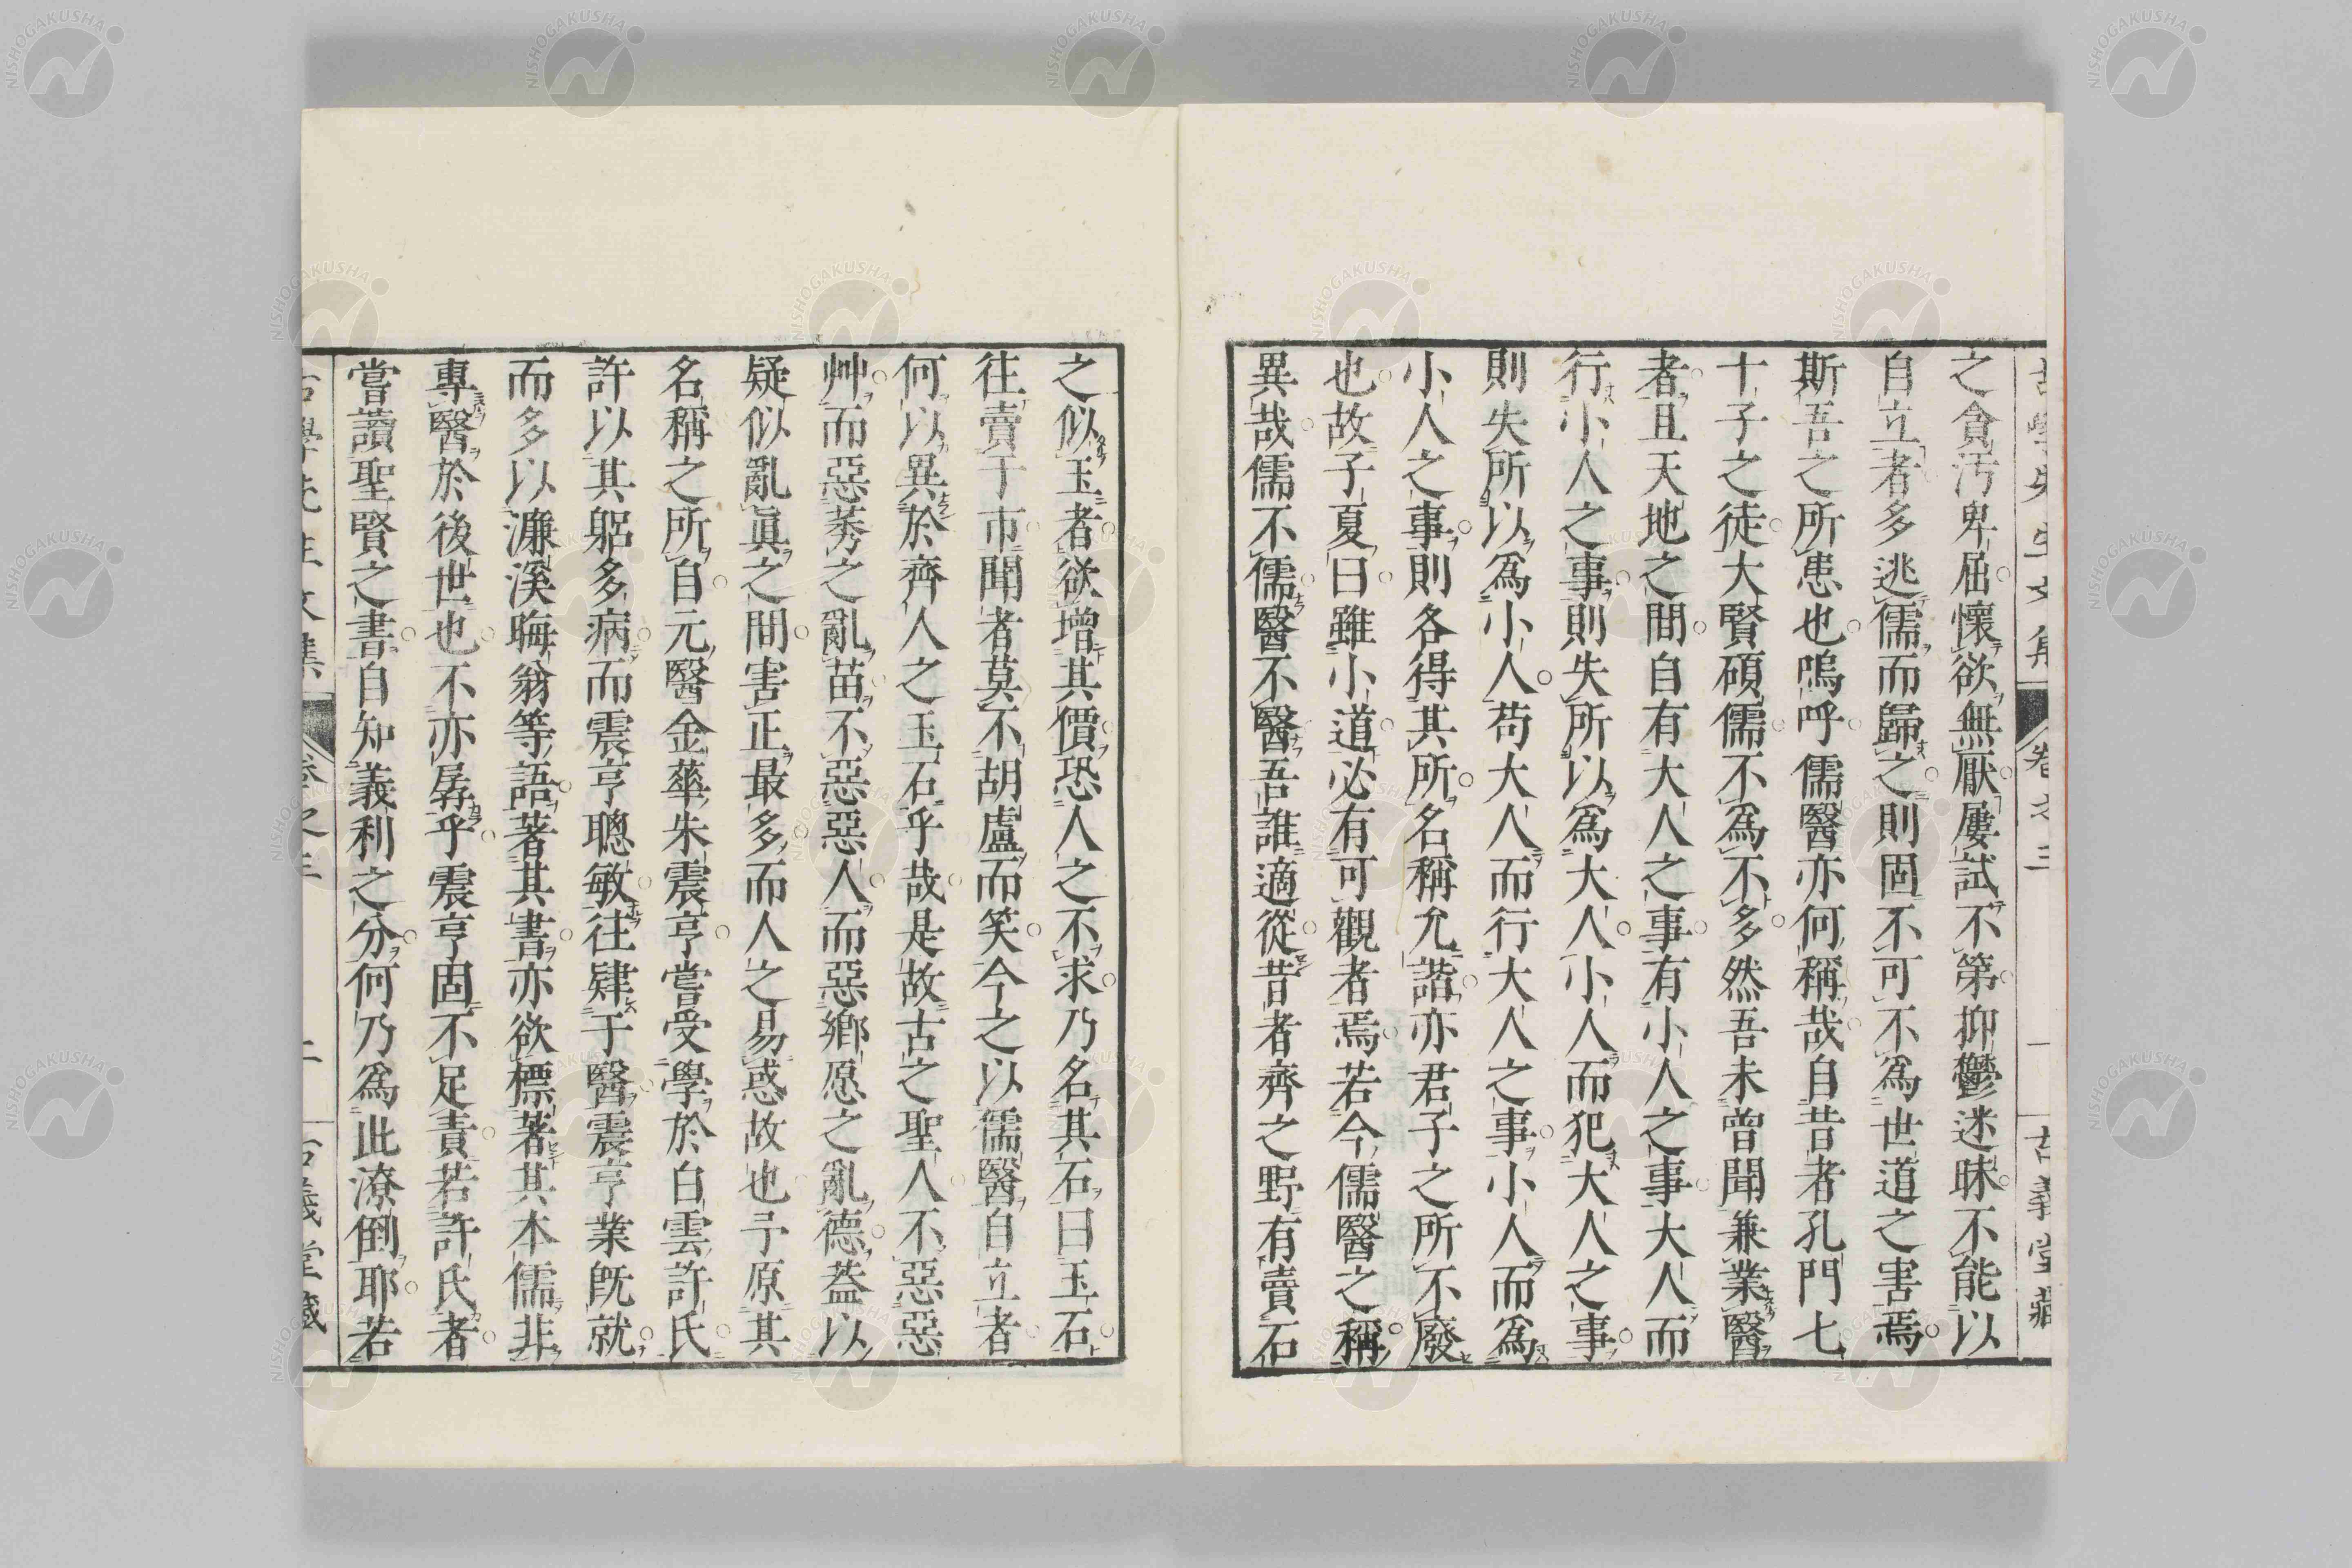 之貪汚卑屈懷欲無厭屢試不第抑鬱迷昧不能以
自立者多逃儒而歸之則固不可不爲世道之害焉
斯吾之所患也嗚呼儒醫亦何稱哉自昔者孔門七
十子之徒大賢碩儒不爲不多然吾未曾聞兼業醫
者且天地之間自有大人之事有小人之事大人而
行小人之事則失所以爲大人小人而犯大人之事
則失所以爲小人苟大人而行大人之事小人而爲
小人之事則各得其所名稱允諧亦君子之所不廢
也故子夏曰雖小道必有可觀者焉若今儒醫之稱
異哉儒不儒醫不醫吾誰適從昔者齊之野有賣石
之似玉者欲增其價恐人之不求乃名其石曰玉石
往賣于市聞者莫不胡盧而笑今之以儒醫自立者
何以異於齊人之玉石乎哉是故古之聖人不惡惡
艸而惡莠之亂苗不惡惡人而惡鄉愿之亂德蓋以
疑似亂眞之間害正最多而人之易惑故也予原其
名稱之所自元醫金華朱震亨嘗受學於白雲許氏
許以其躬多病而震亨聰敏往肄于醫震亨業旣就
而多以濂溪晦翁等語著其書亦欲標著其本儒非
專醫於後世也不亦孱乎震亨固不足責若許氏者
嘗讀聖賢之書自知義利之分何乃爲此潦倒耶若
古學先生文集 卷之三 二 古義堂藏
NISHOGAKUSHA